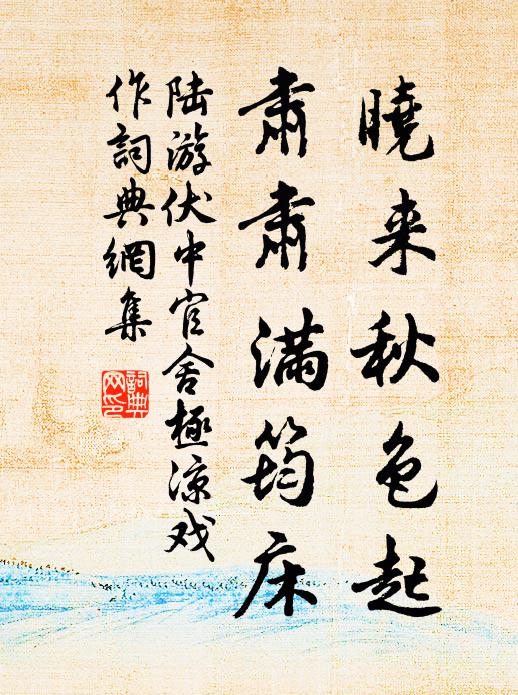 曉来秋色起
肅肅滿筠床
陆游伏中官舍極涼戏
作詞典網集
詞典
网印